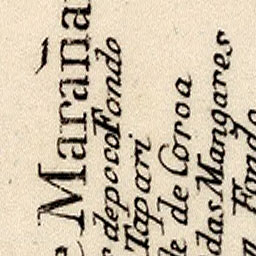 e Marana
depoco Fondo
Tapari
e de Coroa
das Mangares
Fondo